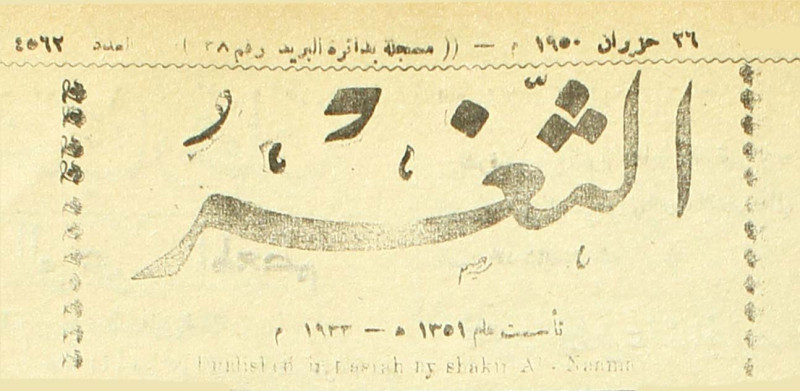 ٢٦ حزيران ١٩٥٠ م — (( مسجلة بدائرة البريد رقم ٢٨ ) العدد ٤٥٦٢
الثغر
تأسست عام ١٣٥١ ه — ١٩٣٣ م
Published in Basrah by shakir Al - Naama